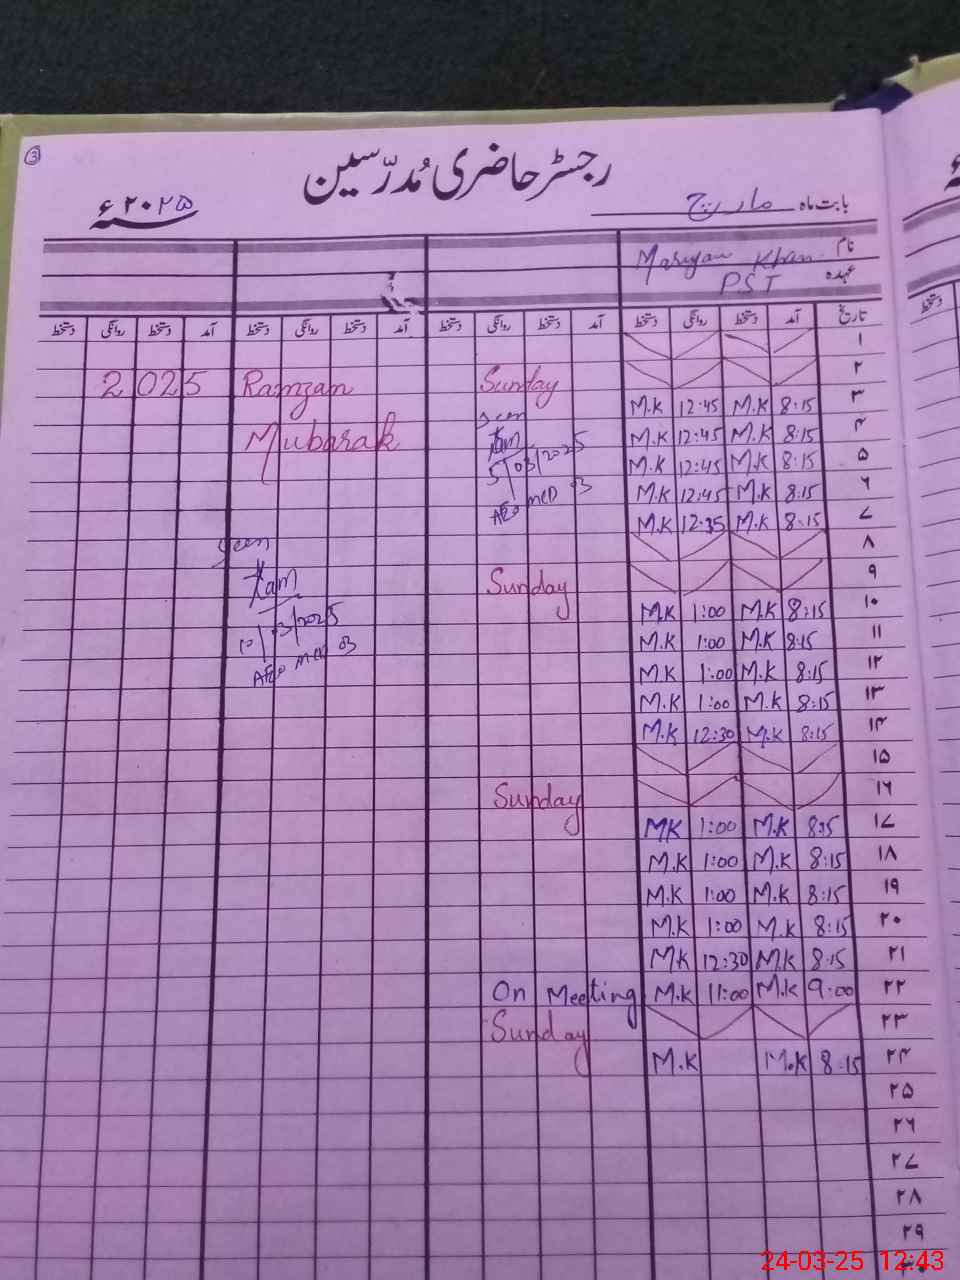 3
رجسٹر حاضری مُدرّسین
بابت ماہ مارچ
۲۰۲۵ء
نام Maryam Khan
عہدہ PST
تاریخ آمد دستخط روانگی دستخط آمد دستخط روانگی دستخط آمد دستخط روانگی دستخط آمد دستخط روانگی دستخط
۱
۲ Sunday Ramzan 2025
M.K 12:45 M.K 8:15 ۳
Mubarak
M.K 12:45 M.K 8:15 ۴
M.K 12:45 M.K 8:15 ۵
M.K 12:45 M.K 8:15 ۶
M.K 12:35 M.K 8:15 ۷
seen
5/03/2025
AEO MCD 03
۸
Sunday ۹
seen
10/03/2025
AEO MCD 03
M.K 1:00 M.K 8:15 ۱۰
M.K 1:00 M.K 8:15 ۱۱
M.K 1:00 M.K 8:15 ۱۲
M.K 1:00 M.K 8:15 ۱۳
M.K 12:30 M.K 8:15 ۱۴
۱۵
Sunday ۱۶
MK 1:00 M.K 8:15 ۱۷
M.K 1:00 M.K 8:15 ۱۸
M.K 1:00 M.K 8:15 ۱۹
M.K 1:00 M.K 8:15 ۲۰
MK 12:30 M.K 8:15 ۲۱
On Meeting M.K 11:00 M.K 9:00 ۲۲
Sunday ۲۳
M.K M.K 8:15 ۲۴
۲۵
۲۶
۲۷
۲۸
۲۹
24-03-25 12:43